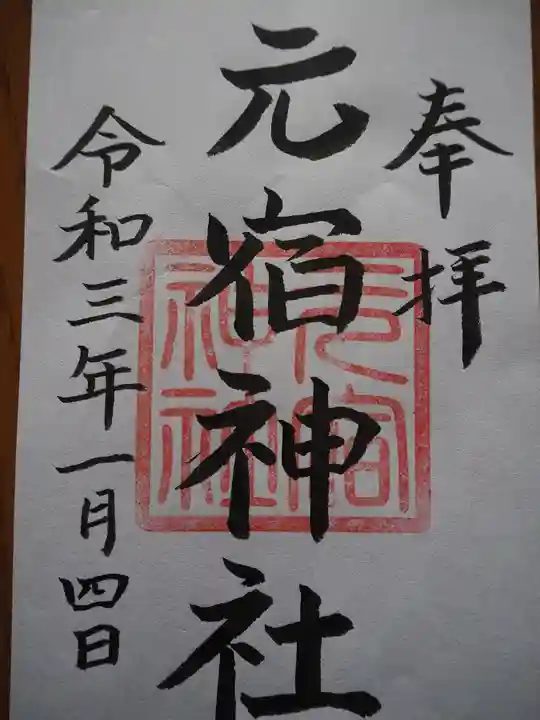 奉拝
元宿神社
令和三年一月四日
元宿
神社